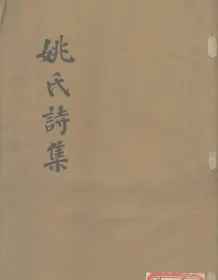 姚氏詩集